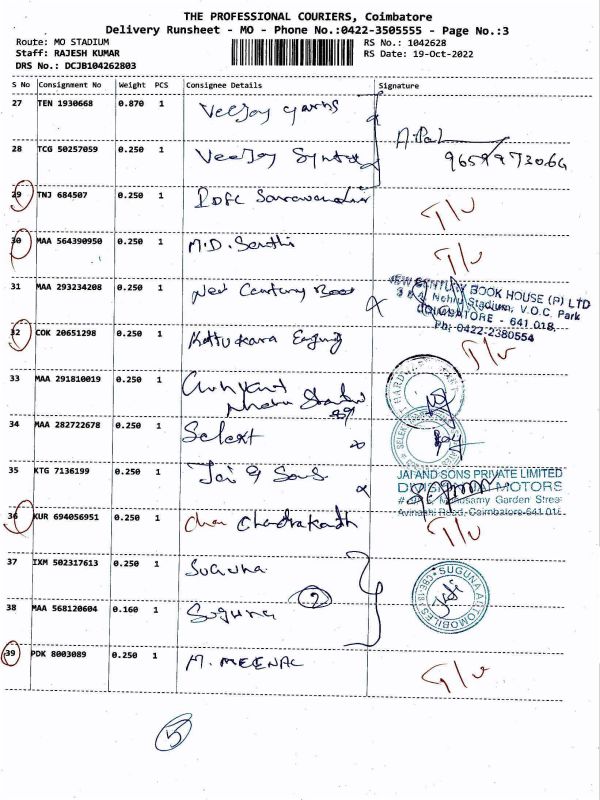 THE PROFESSIONAL COURIERS, Coimbatore
Delivery Runsheet - MO - Phone No.:0422-3505555 - Page No.:3
Route: MO STADIUM
RS No.: 1042628
Staff: RAJESH KUMAR
RS Date: 19-Oct-2022
DRS No.: DCJB104262803
S No Consignment No Weight PCS Consignee Details Signature
27 TEN 1930668 0.870 1 Veejay yarns
28 TCG 50257059 0.250 1 Veejay
29 TNJ 684507 0.250 1 T/v
30 MAA 564390950 0.250 1 M.D. Senthi T/v
31 MAA 293234208 0.250 1 New Century Book
NEW CENTURY BOOK HOUSE (P) LTD
Nehru Stadium, V.O.C. Park
COIMBATORE - 641 018.
Ph: 0422-2380554
32 COK 20651298 0.250 1 Kottukara T/v
33 MAA 291810019 0.250 1
34 MAA 282722678 0.250 1 Select
35 KTG 7136199 0.250 1 Jai & Sons
JAI AND SONS PRIVATE LIMITED
MOTORS
Garden Street
Avinashi Road, Coimbatore-641 018
36 KUR 694056951 0.250 1 Chandrakanth T/v
37 IXM 502317613 0.250 1 Suguna
SUGUNA AUTOMOBILES
38 MAA 568120604 0.160 1 Suguna
2
39 PDK 8003089 0.250 1 M. MEENAL T/v
5